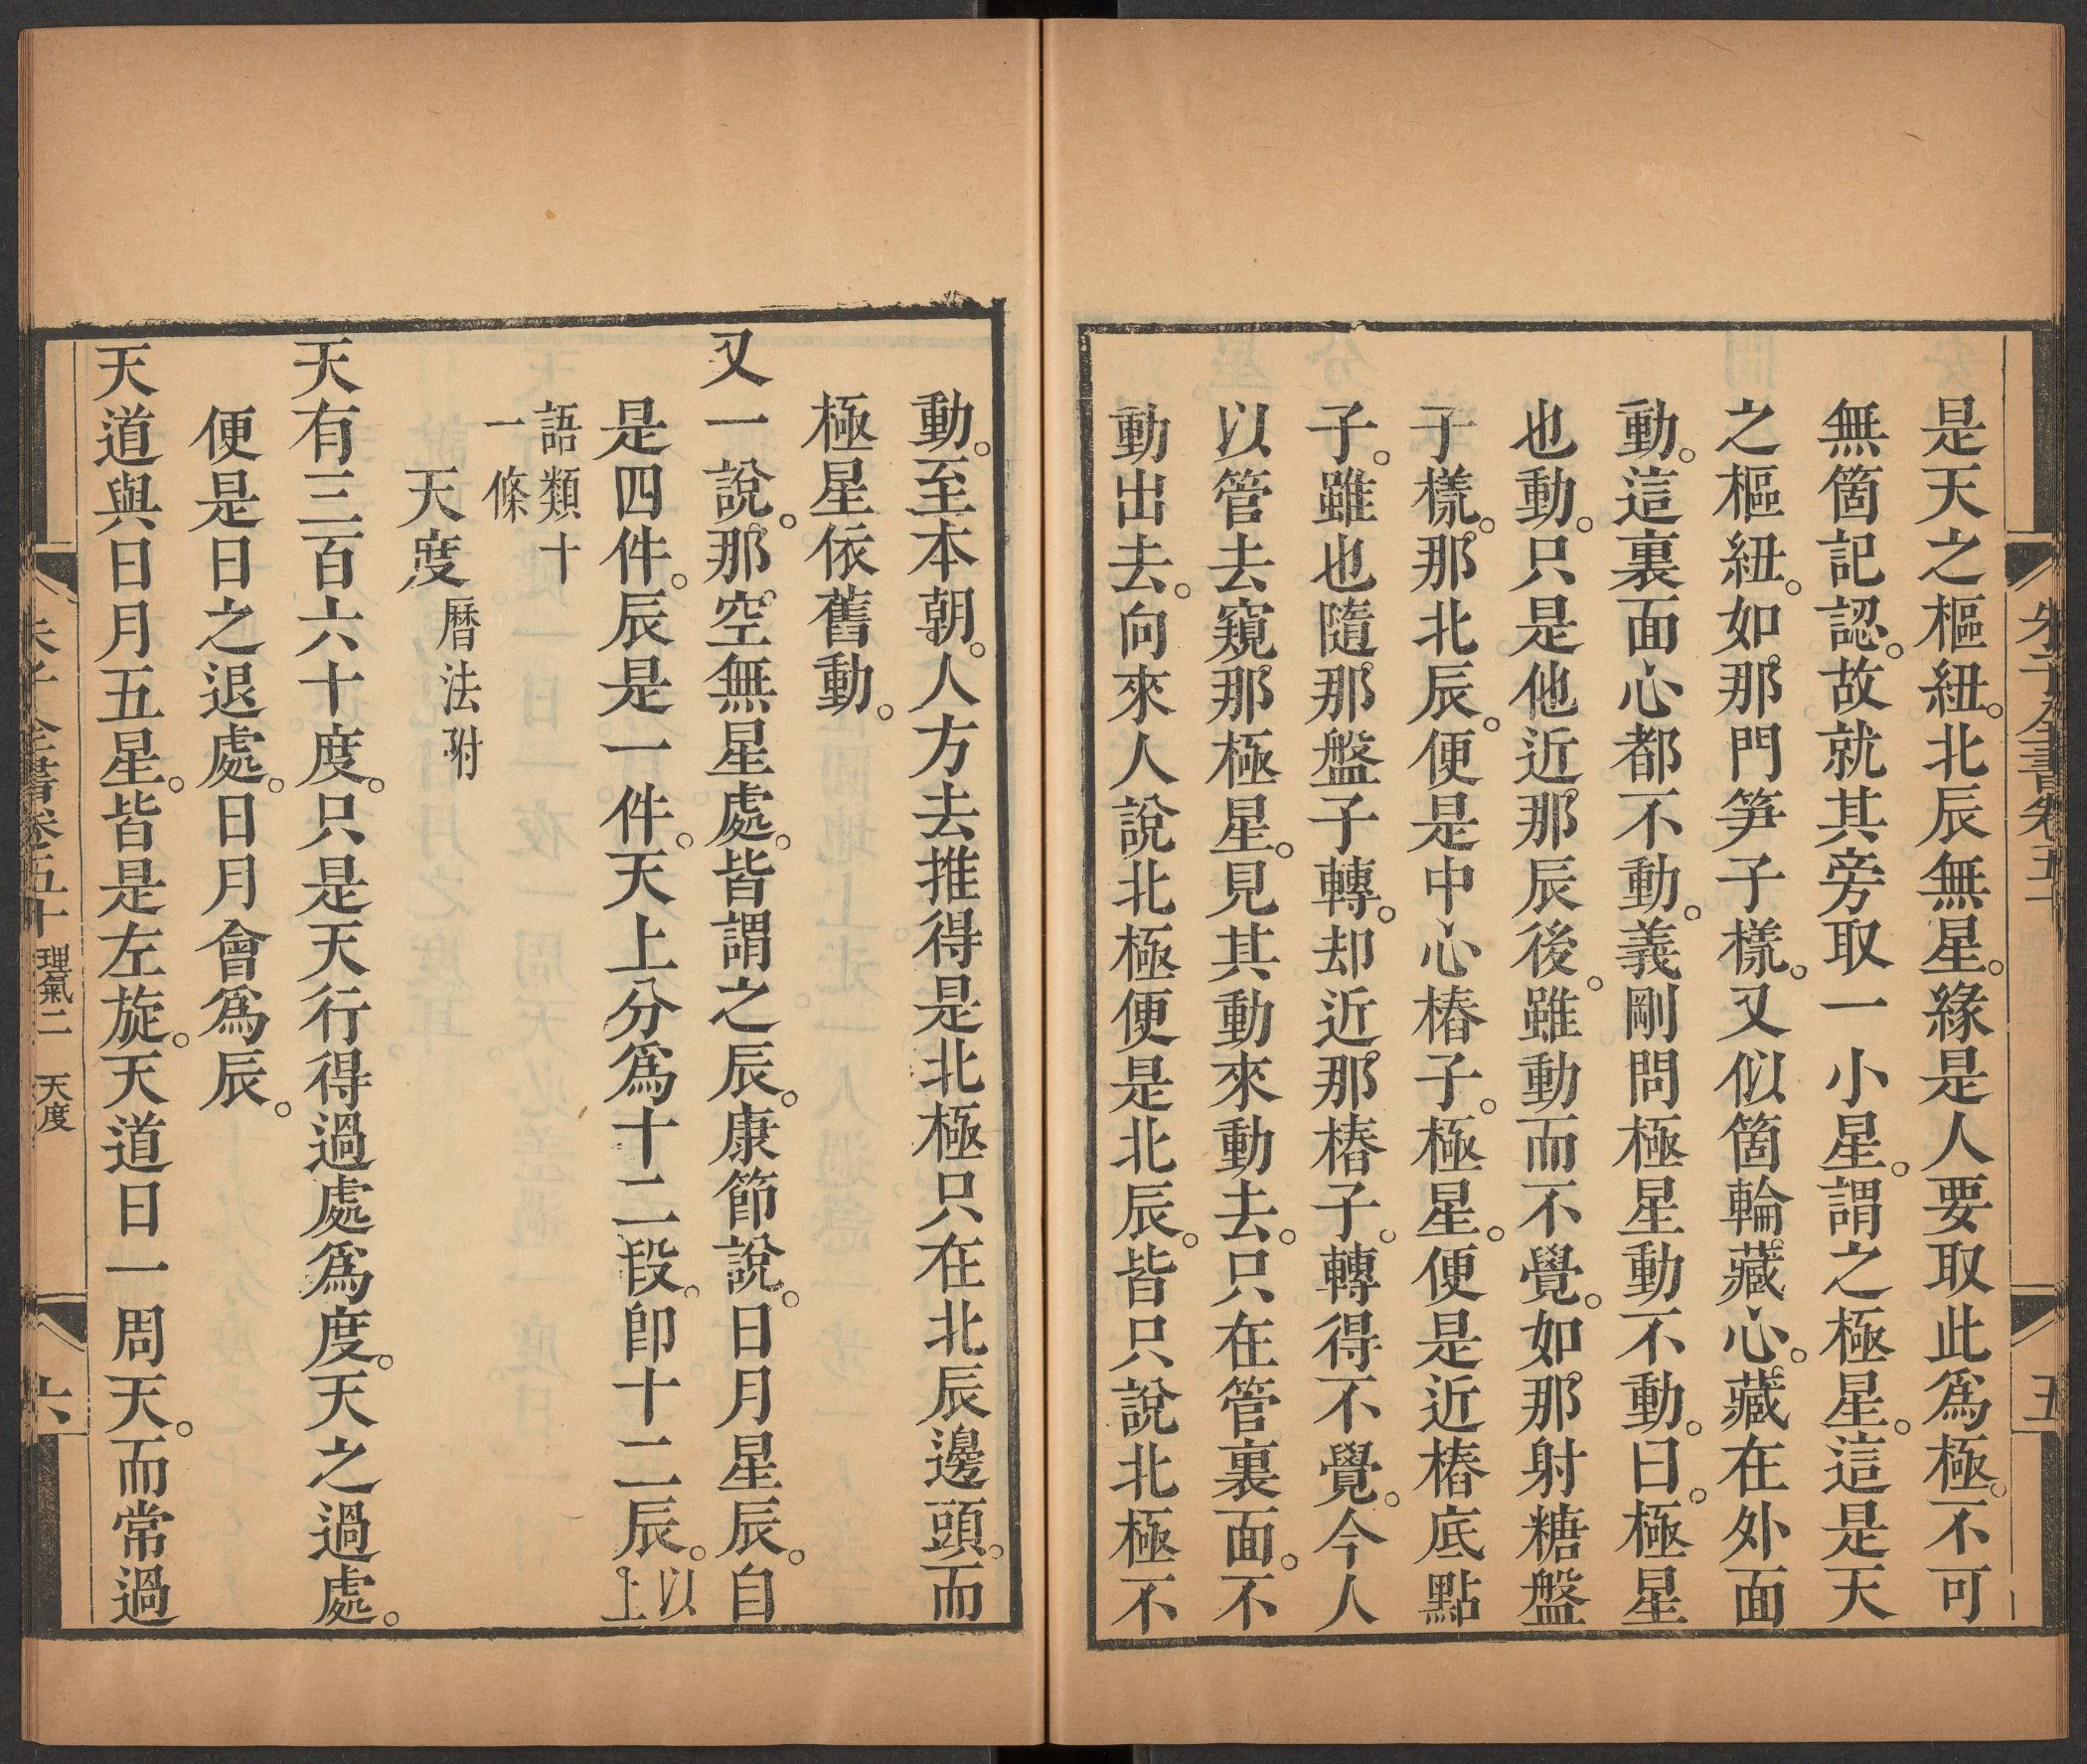 朱子全書卷五十
五
是天之樞紐。北辰無星。緣是人要取此爲極。不可
無箇記認。故就其旁取一小星。謂之極星。這是天
之樞紐。如那門笋子樣。又似箇輪藏心。藏在外面
動。這裏面心都不動。義剛問極星動不動。曰。極星
也動。只是他近那辰後。雖動而不覺。如那射糖盤
子樣。那北辰。便是中心樁子。極星。便是近樁底點
子。雖也隨那盤子轉。却近那樁子。轉得不覺。今人
以管去窺那極星。見其動來動去。只在管裏面。不
動出去。向來人說北極便是北辰。皆只說北極不
動。至本朝。人方去推得是北極只在北辰邊頭。而
極星依舊動。
又一說。那空無星處。皆謂之辰。康節說。日月星辰。自
是四件。辰是一件。天上分爲十二段。卽十二辰。以上
語類十
一條
天度曆法附
天有三百六十度。只是天行得過處爲度。天之過處。
便是日之退處。日月會爲辰。
天道與日月五星。皆是左旋。天道日一周天。而常過
朱子全書卷五十 理氣二 天度
六